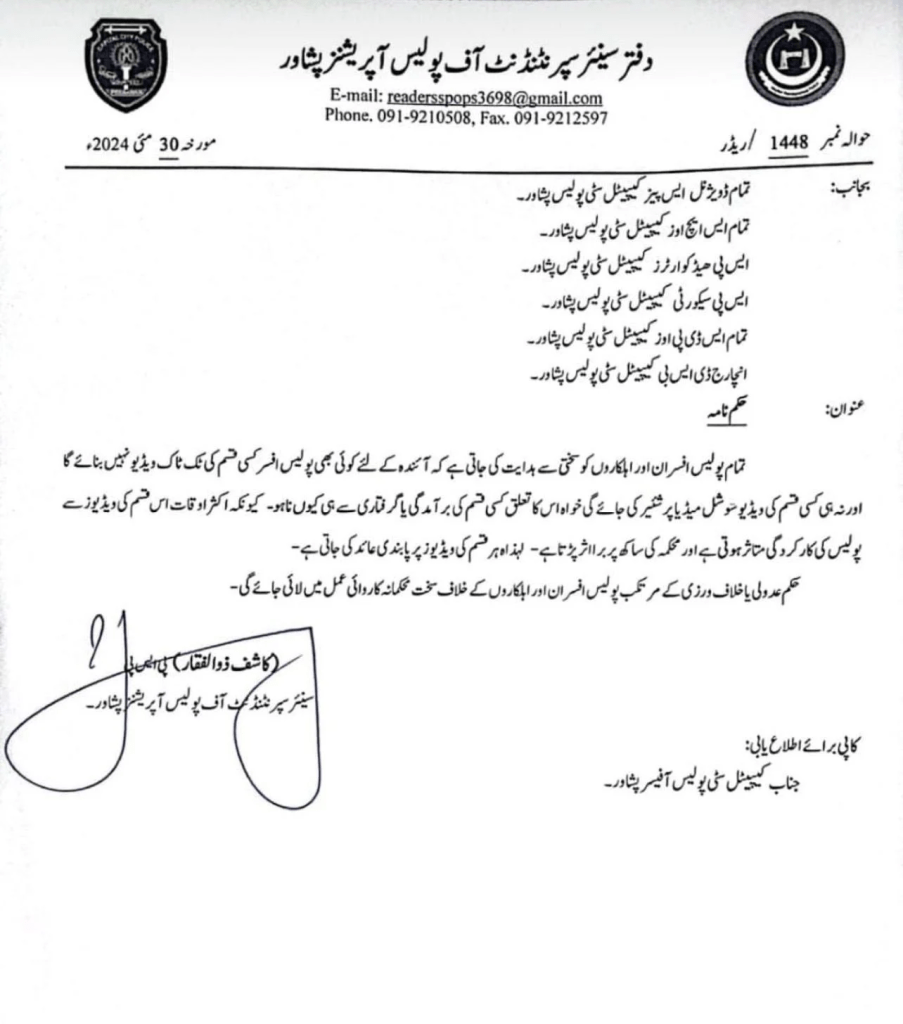 دفتر سینئر سپرنٹنڈنٹ آف پولیس آپریشنز پشاور
E-mail: readersspops3698@gmail.com
Phone. 091-9210508, Fax. 091-9212597
حوالہ نمبر 1448 /ریڈر مورخہ 30 مئی 2024ء
بجانب: تمام ڈویژنل ایس پیز کیپیٹل سٹی پولیس پشاور۔
تمام ایس ایچ اوز کیپیٹل سٹی پولیس پشاور۔
ایس پی ھیڈ کوارٹرز کیپیٹل سٹی پولیس پشاور۔
ایس پی سیکورٹی کیپیٹل سٹی پولیس پشاور۔
تمام ایس ڈی پی اوز کیپیٹل سٹی پولیس پشاور۔
انچارج ڈی ایس بی کیپیٹل سٹی پولیس پشاور۔
عنوان: حکم نامہ
تمام پولیس افسران اور اہلکاروں کو سختی سے ہدایت کی جاتی ہے کہ آئندہ کے لئے کوئی بھی پولیس افسر کسی قسم کی ٹک ٹاک ویڈیو نہیں بنائے گا
اور نہ ہی کسی قسم کی ویڈیو سوشل میڈیا پر شئیر کی جائے گی خواہ اس کا تعلق کسی قسم کی برآمدگی یا گرفتاری سے ہی کیوں نا ہو۔ کیونکہ اکثر اوقات اس قسم کی ویڈیوز سے
پولیس کی کارکردگی متاثر ہوتی ہے اور محکمہ کی ساکھ پر برا اثر پڑتا ہے۔ لہذا ہر قسم کی ویڈیوز پر پابندی عائد کی جاتی ہے۔
حکم عدولی یا خلاف ورزی کے مرتکب پولیس افسران اور اہلکاروں کے خلاف سخت محکمانہ کاروائی عمل میں لائی جائے گی۔
(کاشف ذوالفقار) پی ایس پی
سینئر سپرنٹنڈنٹ آف پولیس آپریشنز پشاور۔
کاپی برائے اطلاع یابی:
جناب کیپیٹل سٹی پولیس آفیسر پشاور۔